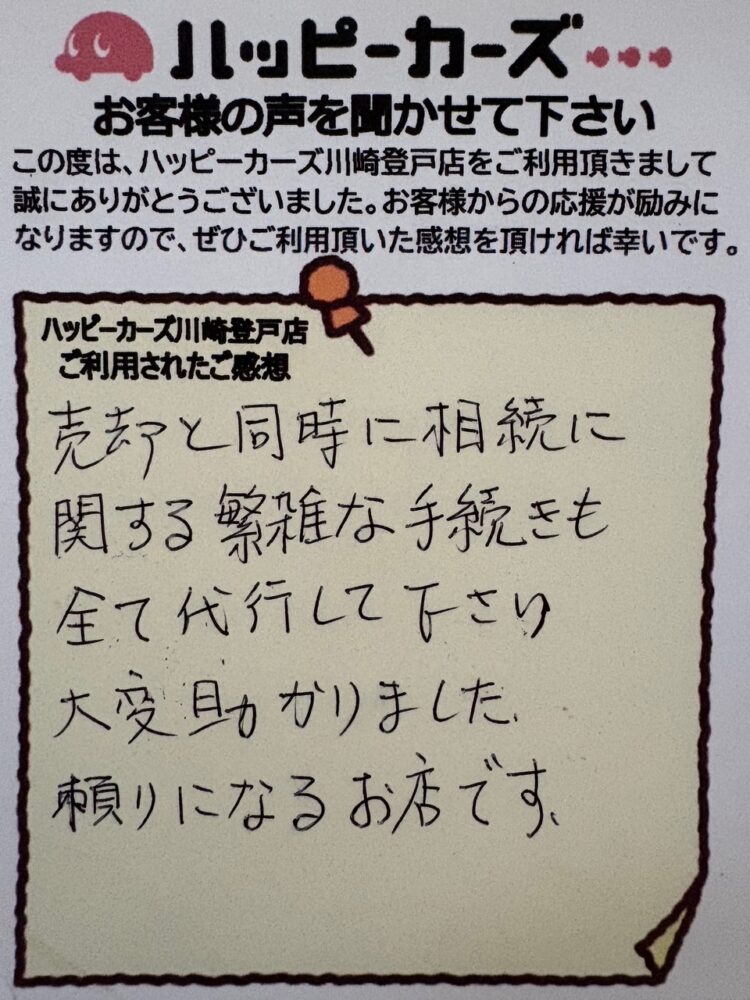 ハッピーカーズ
お客様の声を聞かせて下さい
この度は、ハッピーカーズ川崎登戸店をご利用頂きまして
誠にありがとうございました。お客様からの応援が励みに
なりますので、ぜひご利用頂いた感想を頂ければ幸いです。
ハッピーカーズ川崎登戸店
ご利用されたご感想
売却と同時に相続に
関する繁雑な手続きも
全て代行して下さり
大変助かりました、
頼りになるお店です、